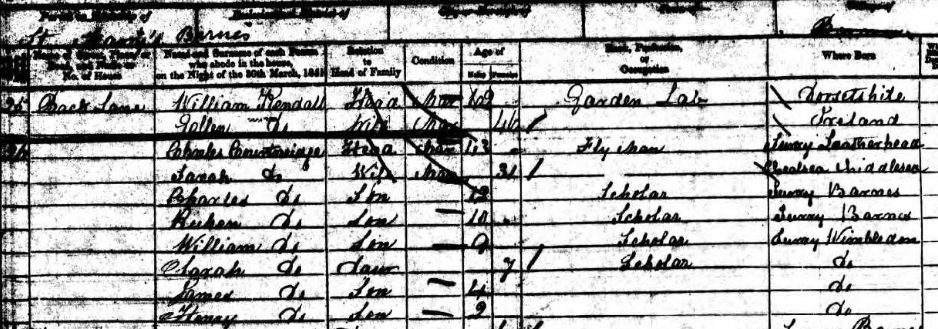 Parish or Township of
St Mary's Barnes
Name of Street, Place, or Road, and Name or No. of House Name and Surname of each Person who abode in the house, on the Night of the 30th March, 1851 Relation to Head of Family Condition Age of Males Females Rank, Profession, or Occupation Where Born
25 Back Lane William Kendall Head Mar Garden Lab Dorsetshire
do Wife Mar 46 Ireland
26 Charles Head Mar 43 Fly Man Surry Leatherhead
Sarah do Wife Mar 31 Chelsea Middlesex
Charles do Son 12 Scholar Surry Barnes
do Son 10 Scholar Surry Barnes
William do Son 9 Scholar Surry Wimbledon
Sarah do Daur 7 Scholar do
James do Son 4 do
Henry do Son 2 do